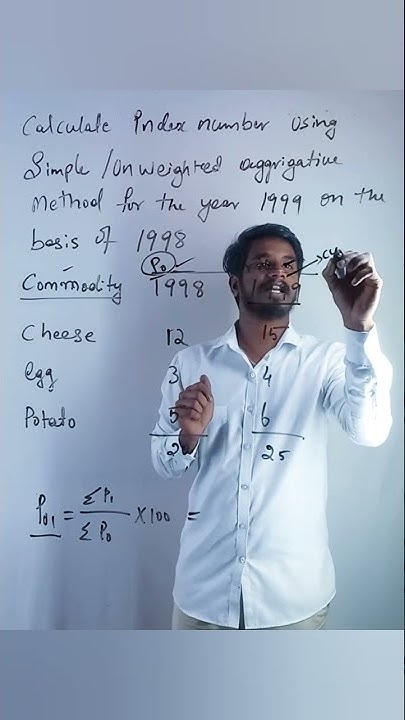 Calculate Index number using
Simple / Unweighted aggrigative
Method for the year 1999 on the
basis of 1998
P₀
Commodity 1998
Cheese 12 15
egg 3 4
Potato 5 6
2 25
P₀₁ = ΣP₁ / ΣP₀ × 100 =